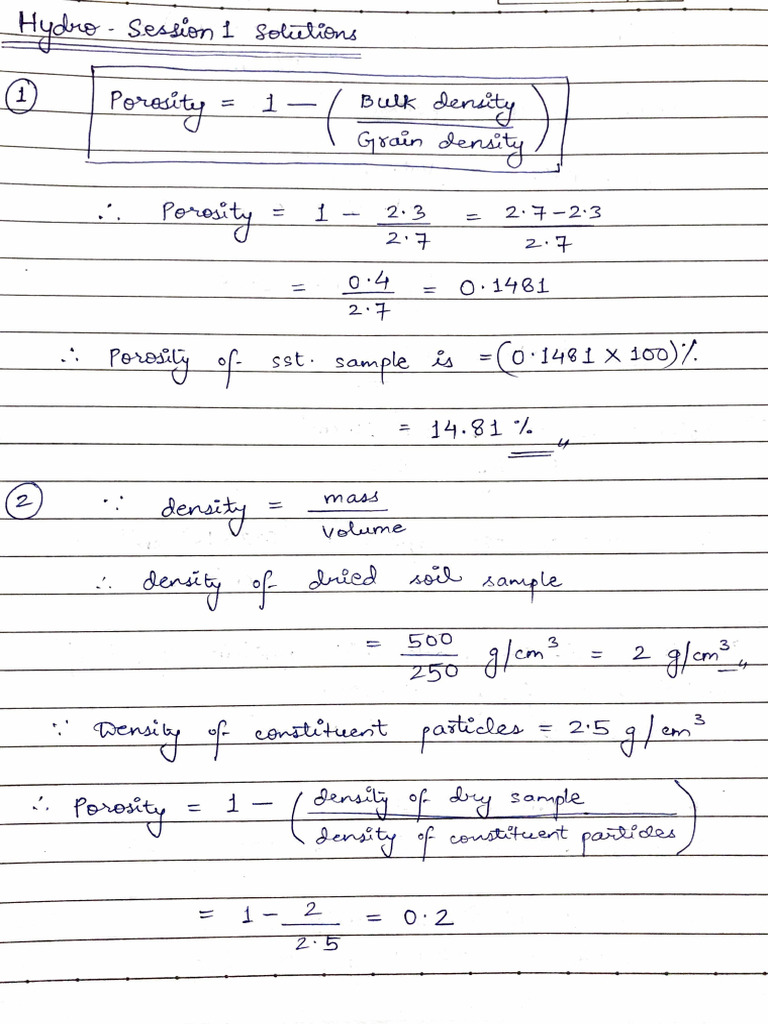 Hydro - Session 1 Solutions
① Porosity = 1 - (Bulk density / Grain density)
∴ Porosity = 1 - 2.3/2.7 = 2.7-2.3/2.7
= 0.4/2.7 = 0.1481
∴ Porosity of sst. sample is = (0.1481 × 100)%
= 14.81 %
② ∵ density = mass/volume
∴ density of dried soil sample
= 500/250 g/cm³ = 2 g/cm³
∵ Density of constituent particles = 2.5 g/cm³
∴ Porosity = 1 - (density of dry sample / density of constituent particles)
= 1 - 2/2.5 = 0.2